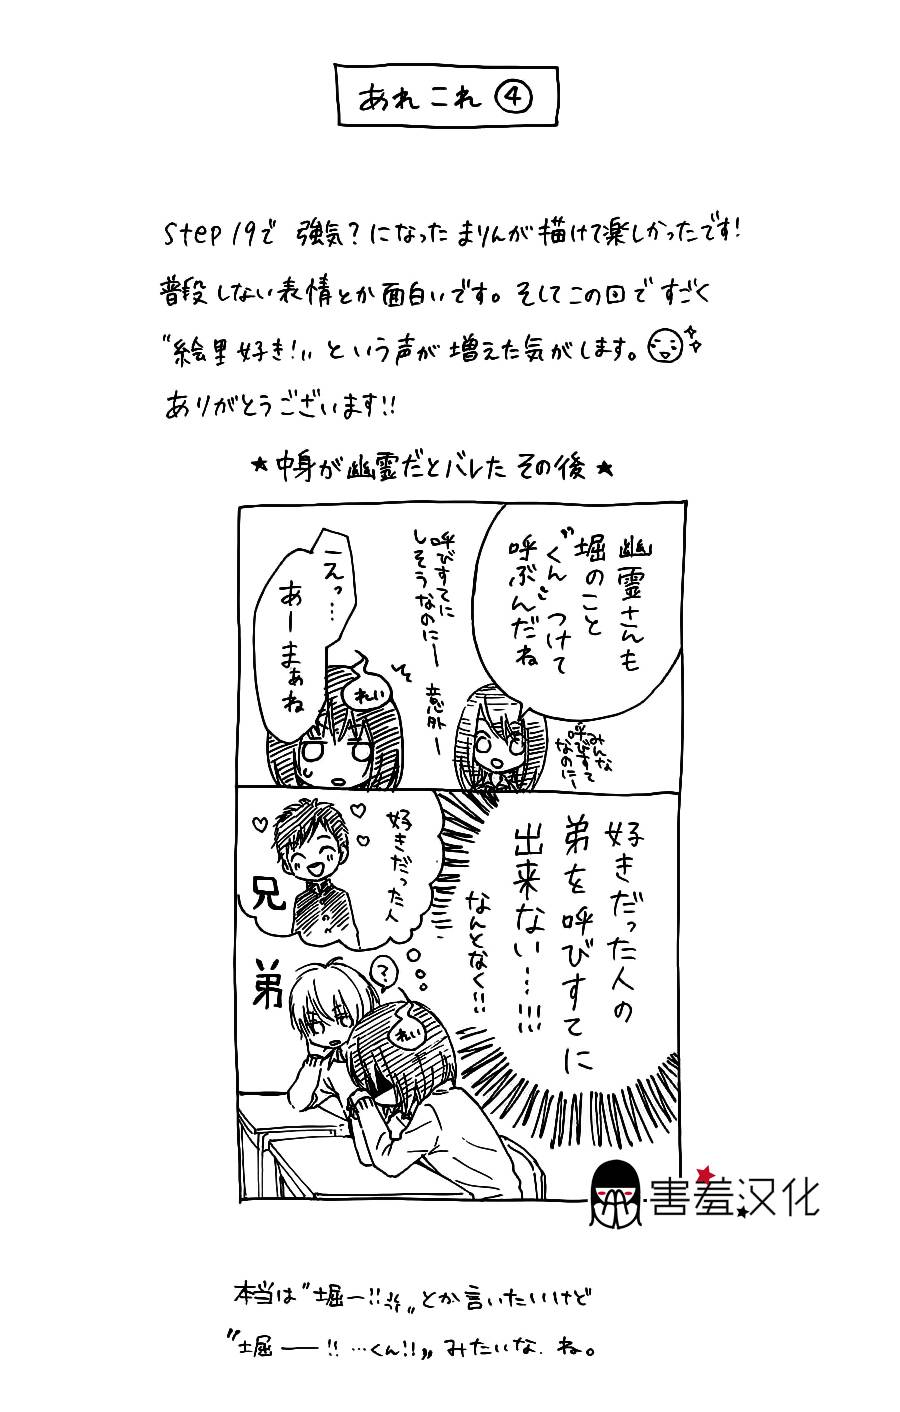 あれこれ④
Step19で 強気?になったまりんが描けて楽しかったです!
普段しない表情とか面白いです。そしてこの回ですごく
"絵里好き!"という声が増えた気がします。
ありがとうございます!!
★中身が幽霊だとバレたその後★
幽霊さんも
堀のこと
"くん"つけて
呼ぶんだね
みんな
呼びすて
なのにー
呼びすてに
しそうなのにー 意外ー
えっ…
あーまぁね
れい
好きだった人の
弟を呼びすてに
出来ない…!!!
なんとなく!!
好きだった人
兄
弟
?
れい
害羞汉化
本当は"堀ー!!"とか言いたいけど
"堀――!!…くん!!"みたいな.ね。